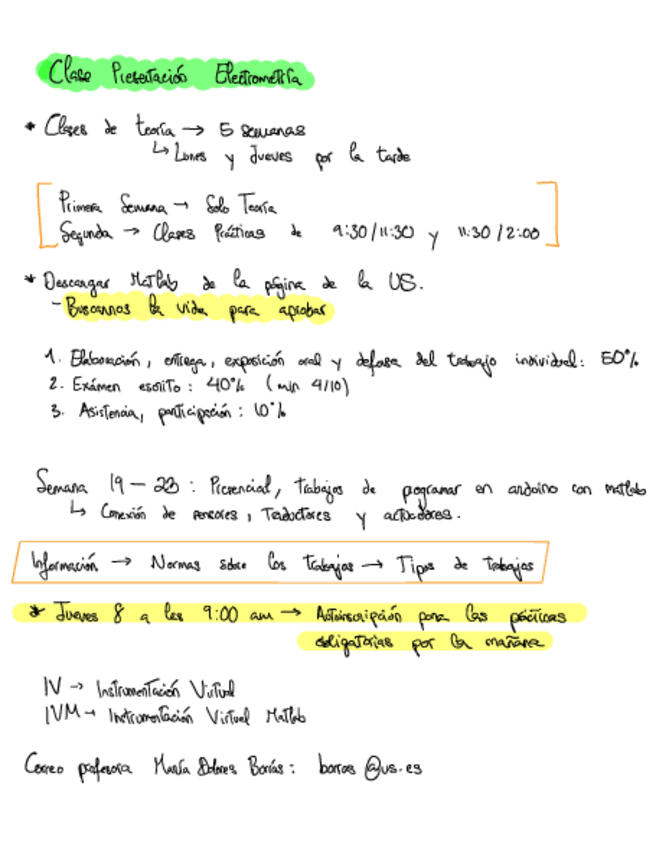 Clase Presentación Electrometría
* Clases de teoría → 5 semanas
↳ Lunes y Jueves por la tarde
Primera Semana → Solo Teoría
Segunda → Clases Prácticas de 9:30/11:30 y 11:30/2:00
* Descargar Matlab de la página de la US.
- Buscannos la vida para aprobar
1. Elaboración, entrega, exposición oral y defensa del trabajo individual: 50%
2. Exámen escrito: 40% (min 4/10)
3. Asistencia, participación: 10%
Semana 19 - 23: Presencial, trabajos de programar en arduino con matlab
↳ Conexión de sensores, Traductores y actuadores.
Información → Normas sobre los trabajos → Tipos de trabajos
* Jueves 8 a las 9:00 am → Autoinscripción para las prácticas
obligatorias por la mañana
IV → Instrumentación Virtual
IVM → Instrumentación Virtual Matlab
Correo profesora María Dolores Borrás: borras@us.es